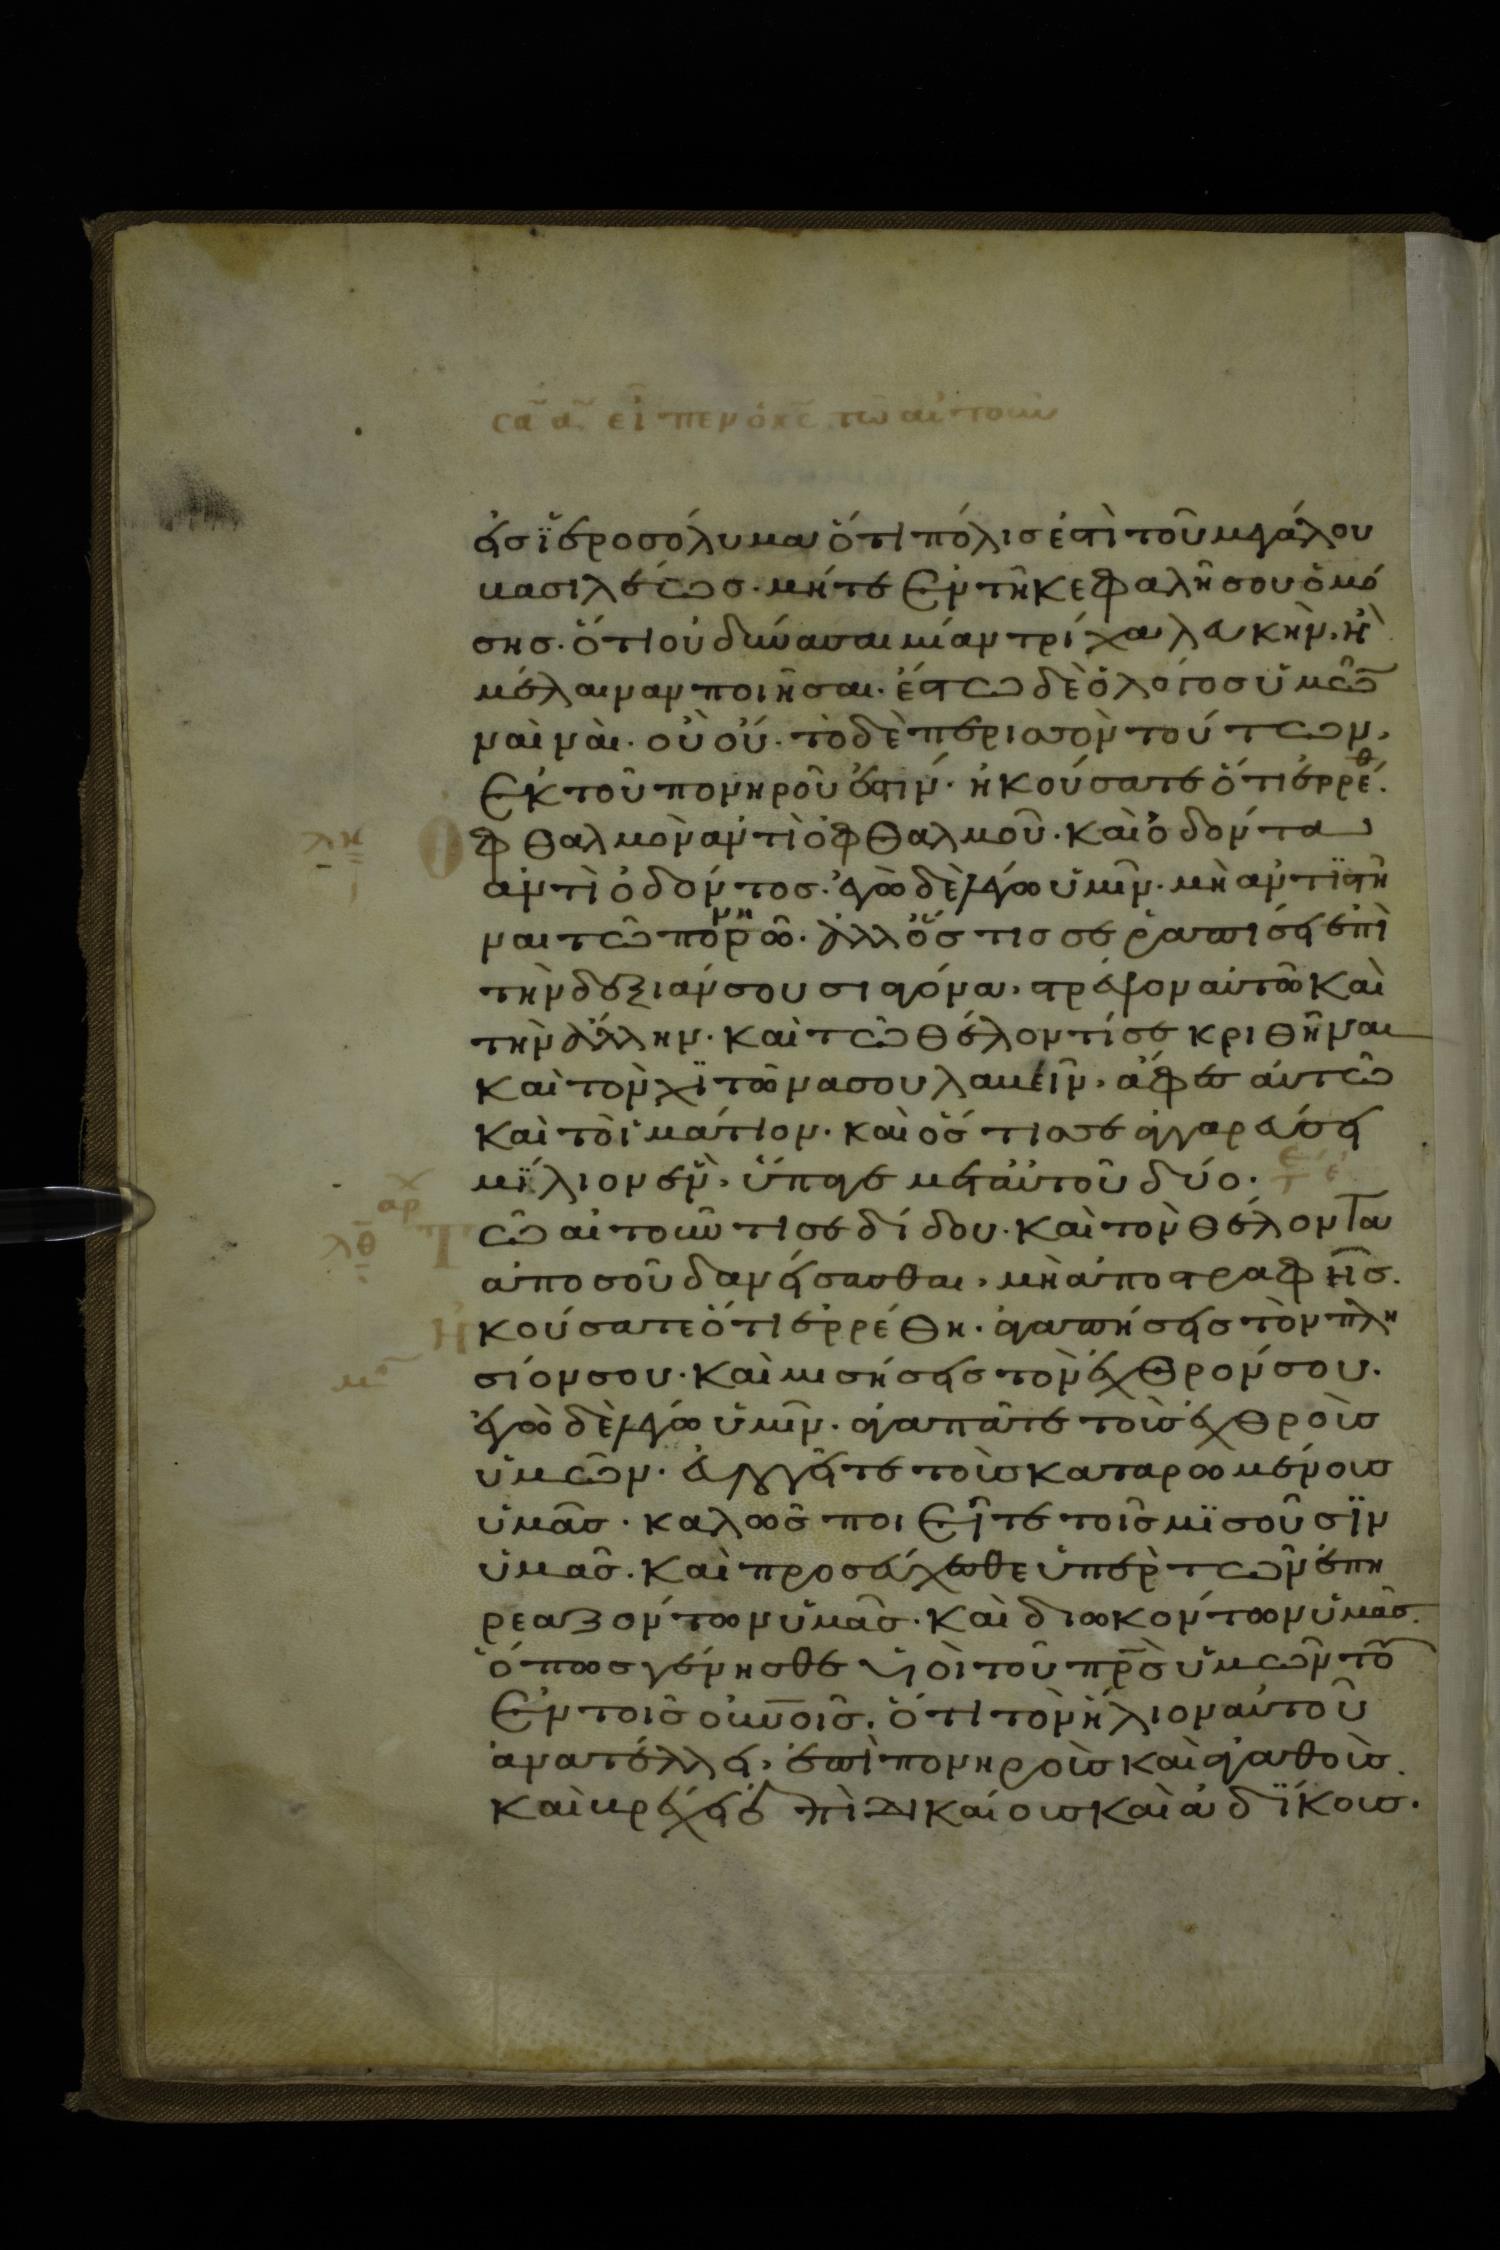 σα α εἶπεν ὁ κς τῶ αἰτοῦν
εἰς ϊεροσόλυμα ὅτι πόλις ἐστὶ τοῦ μεγάλου
βασιλέως· μήτε ἐν τῆ κεφαλῆ σου ὀμό
σης· ὅτι οὐ δύνασαι μίαν τρίχα λευκὴν, ἢ
μέλαιναν ποιῆσαι· ἔστω δὲ ὁ λόγος ὑμῶ̅
ναὶ ναὶ· οὒ οὔ· τὸ δὲ περισσὸν τούτων,
ἐκ τοῦ πονηροῦ ἐστιν· ἠκούσατε ὅτι ἐρρέθ·
λη Ὀφθαλμὸν ἀντὶ ὀφθαλμοῦ· καὶ ὀδόντα
ἀντὶ ὀδόντος· ἐγὼ δὲ λέγω ὑμῖν· μὴ ἀντϊστῆ
ναι τῶ πονηρῶ· ἀλλ ὅστις σε ῥαπίσει ἐπὶ
τὴν δεξιάν σου σιαγόνα, στρέψον αὐτῶ καὶ
τὴν ἄλλην· καὶ τῶ θέλοντί σε κριθῆναι
καὶ τὸν χϊτῶνα σου λαβεῖν, ἄφες αὐτῶ
καὶ τὸ ἱμάτιον· καὶ ὅστις σε ἀγγαρεύσει
μϊλιον ἓν, ὕπαγε μετ αὐτοῦ δύο·
αρχ λθ Τῶ αἰτοῦντι σε δίδου· καὶ τὸν θέλοντα
ἀπο σοῦ δανείσασθαι, μὴ ἀποστραφῆς.
Ἠκούσατε ὅτι ἐρρέθη· ἀγαπήσεις τὸν πλη
μ σίον σου· καὶ μισήσεις τὸν ἐχθρόν σου.
ἐγὼ δὲ λέγω ὑμῖν· ἀγαπᾶτε τοὺς ἐχθροὺς
ὑμῶν· εὐλογεῖτε τοὺς καταρωμένους
ὑμᾶς· καλῶς ποιεῖτε τοῖς μϊσοῦσϊν
ὑμᾶς· καὶ προσεύχεσθε ὑπὲρ τῶν ἐπη
ρεαζόντων ὑμᾶς· καὶ διωκόντων ὑμᾶς.
ὅπως γένησθε ὑϊοὶ τοῦ πρ̅ς ὑμῶν το̅
ἐν τοῖς οὐνοῖς, ὅτι τὸν ἥλιον αὐτοῦ
ἀνατέλλει, ἐπὶ πονηροὺς καὶ ἀγαθοὺς.
καὶ βρέχει ἐπὶ δικαίους καὶ ἀδϊκους·